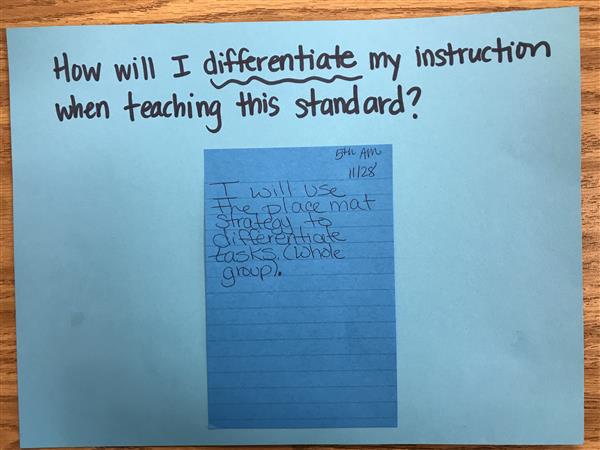 How will I differentiate my instruction
when teaching this standard?
5th AM
11/28
I will use
the place mat
strategy to
differentiate
tasks. (Whole
group).